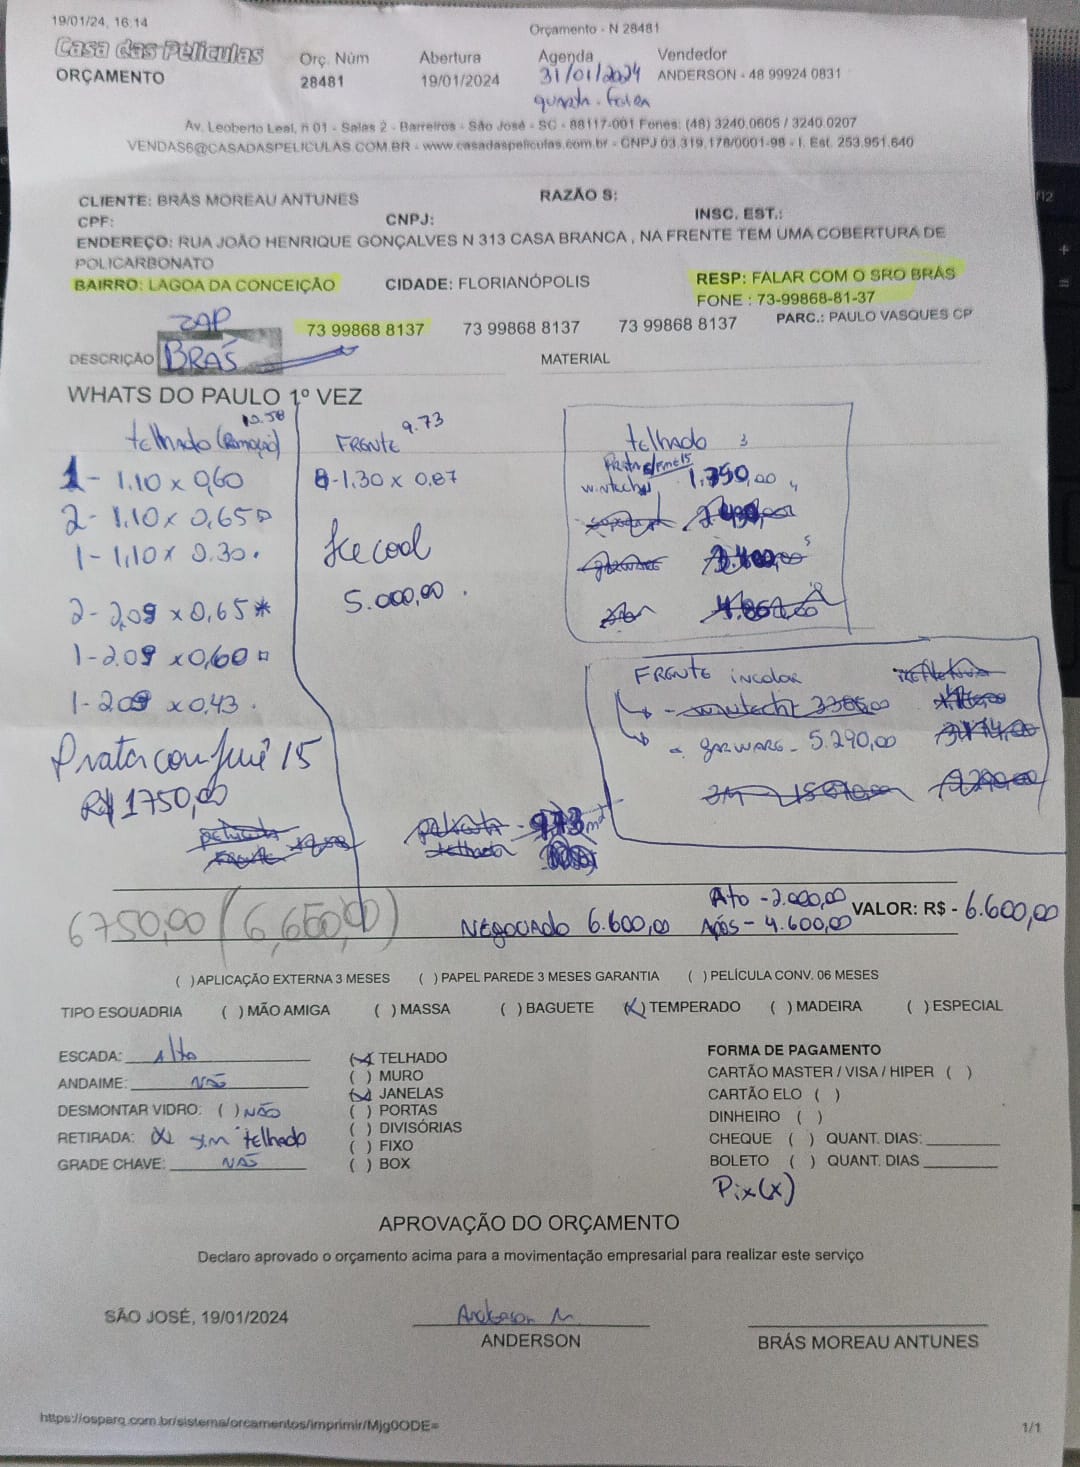 19/01/24, 16:14
Orçamento - N 28481
Casa das Películas
ORÇAMENTO
Orç. Núm
28481
Abertura
19/01/2024
Agenda
31/01/2024
quarta-feira
Vendedor
ANDERSON - 48 99924 0831
Av. Leoberto Leal, n 01 - Salas 2 - Barreiros - São José - SC - 88117-001 Fones: (48) 3240.0605 / 3240.0207
VENDAS6@CASADASPELICULAS.COM.BR - www.casadaspeliculas.com.br - CNPJ 03.319.178/0001-98 - I. Est. 253.951.640
CLIENTE: BRÁS MOREAU ANTUNES
RAZÃO S:
CPF:
CNPJ:
INSC. EST.:
ENDEREÇO: RUA JOÃO HENRIQUE GONÇALVES N 313 CASA BRANCA , NA FRENTE TEM UMA COBERTURA DE
POLICARBONATO
BAIRRO: LAGOA DA CONCEIÇÃO
CIDADE: FLORIANÓPOLIS
RESP: FALAR COM O SRO BRÁS
FONE : 73-99868-81-37
ZAP
73 99868 8137
73 99868 8137
73 99868 8137
PARC.: PAULO VASQUES CP
DESCRIÇÃO
BRÁS
MATERIAL
WHATS DO PAULO 1º VEZ
telhado (Remoção)
1 - 1.10 x 0,60
2 - 1.10 x 0,65
1 - 1,10 x 0.30.
2 - 2,09 x 0,65 *
1 - 2.09 x 0,60
1 - 2.09 x 0,43.
Prata com fumê 15
R$ 1750,00
película
frente
9.73
FRENTE
8 - 1.30 x 0.87
Ice cool
5.000,00.
telhado
Prata fume 15
wintech
1.750,00
3M
FRENTE incolor
refletiva
wintech
- garware - 5.290,00
3M
película - 9,73 m²
telhado
6750,00 (6,650,00)
NEGOCIADO 6.600,00
Ato - 2.000,00
Após - 4.600,00
VALOR: R$ - 6.600,00
( ) APLICAÇÃO EXTERNA 3 MESES ( ) PAPEL PAREDE 3 MESES GARANTIA ( ) PELÍCULA CONV. 06 MESES
TIPO ESQUADRIA ( ) MÃO AMIGA ( ) MASSA ( ) BAGUETE (X) TEMPERADO ( ) MADEIRA ( ) ESPECIAL
ESCADA: Alta
ANDAIME: NÃO
DESMONTAR VIDRO: ( ) NÃO
RETIRADA: (X) sim telhado
GRADE CHAVE: NÃO
(X) TELHADO
( ) MURO
(X) JANELAS
( ) PORTAS
( ) DIVISÓRIAS
( ) FIXO
( ) BOX
FORMA DE PAGAMENTO
CARTÃO MASTER / VISA / HIPER ( )
CARTÃO ELO ( )
DINHEIRO ( )
CHEQUE ( ) QUANT. DIAS:
BOLETO ( ) QUANT. DIAS
Pix (X)
APROVAÇÃO DO ORÇAMENTO
Declaro aprovado o orçamento acima para a movimentação empresarial para realizar este serviço
SÃO JOSÉ, 19/01/2024
Anderson M.
ANDERSON
BRÁS MOREAU ANTUNES
https://osparq.com.br/sistema/orcamentos/imprimir/Mjg0ODE=
1/1